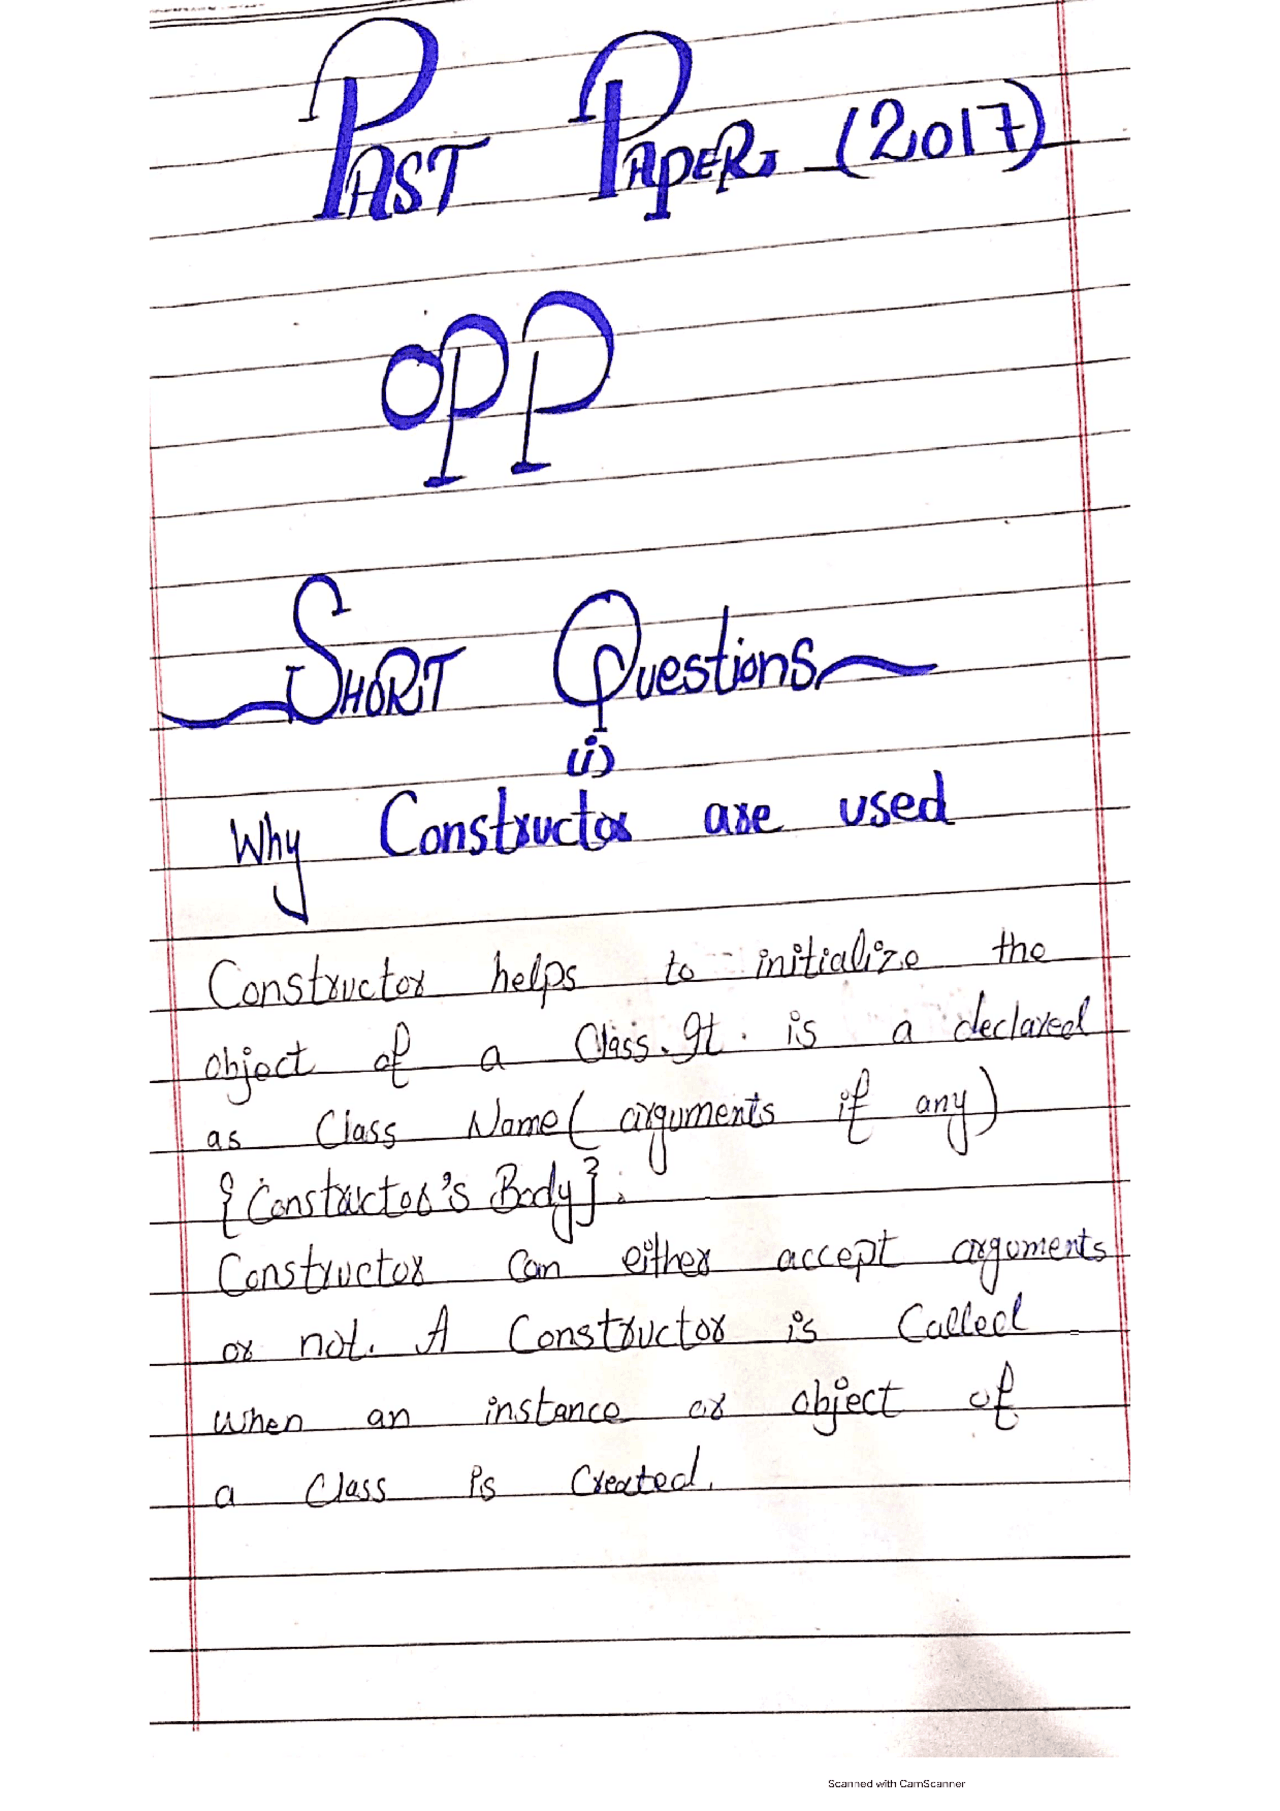 PAST PAPER, (2017)
OPP
SHORT Questions
(i)
Why Constructor are used
Constructor helps to initialize the
object of a Class. It is a declared
as Class Name( arguments if any)
{Constructor's Body}.
Constructor Can either accept arguments
or not. A Constructor is Called
when an instance or object of
a Class is Created.
Scanned with CamScanner